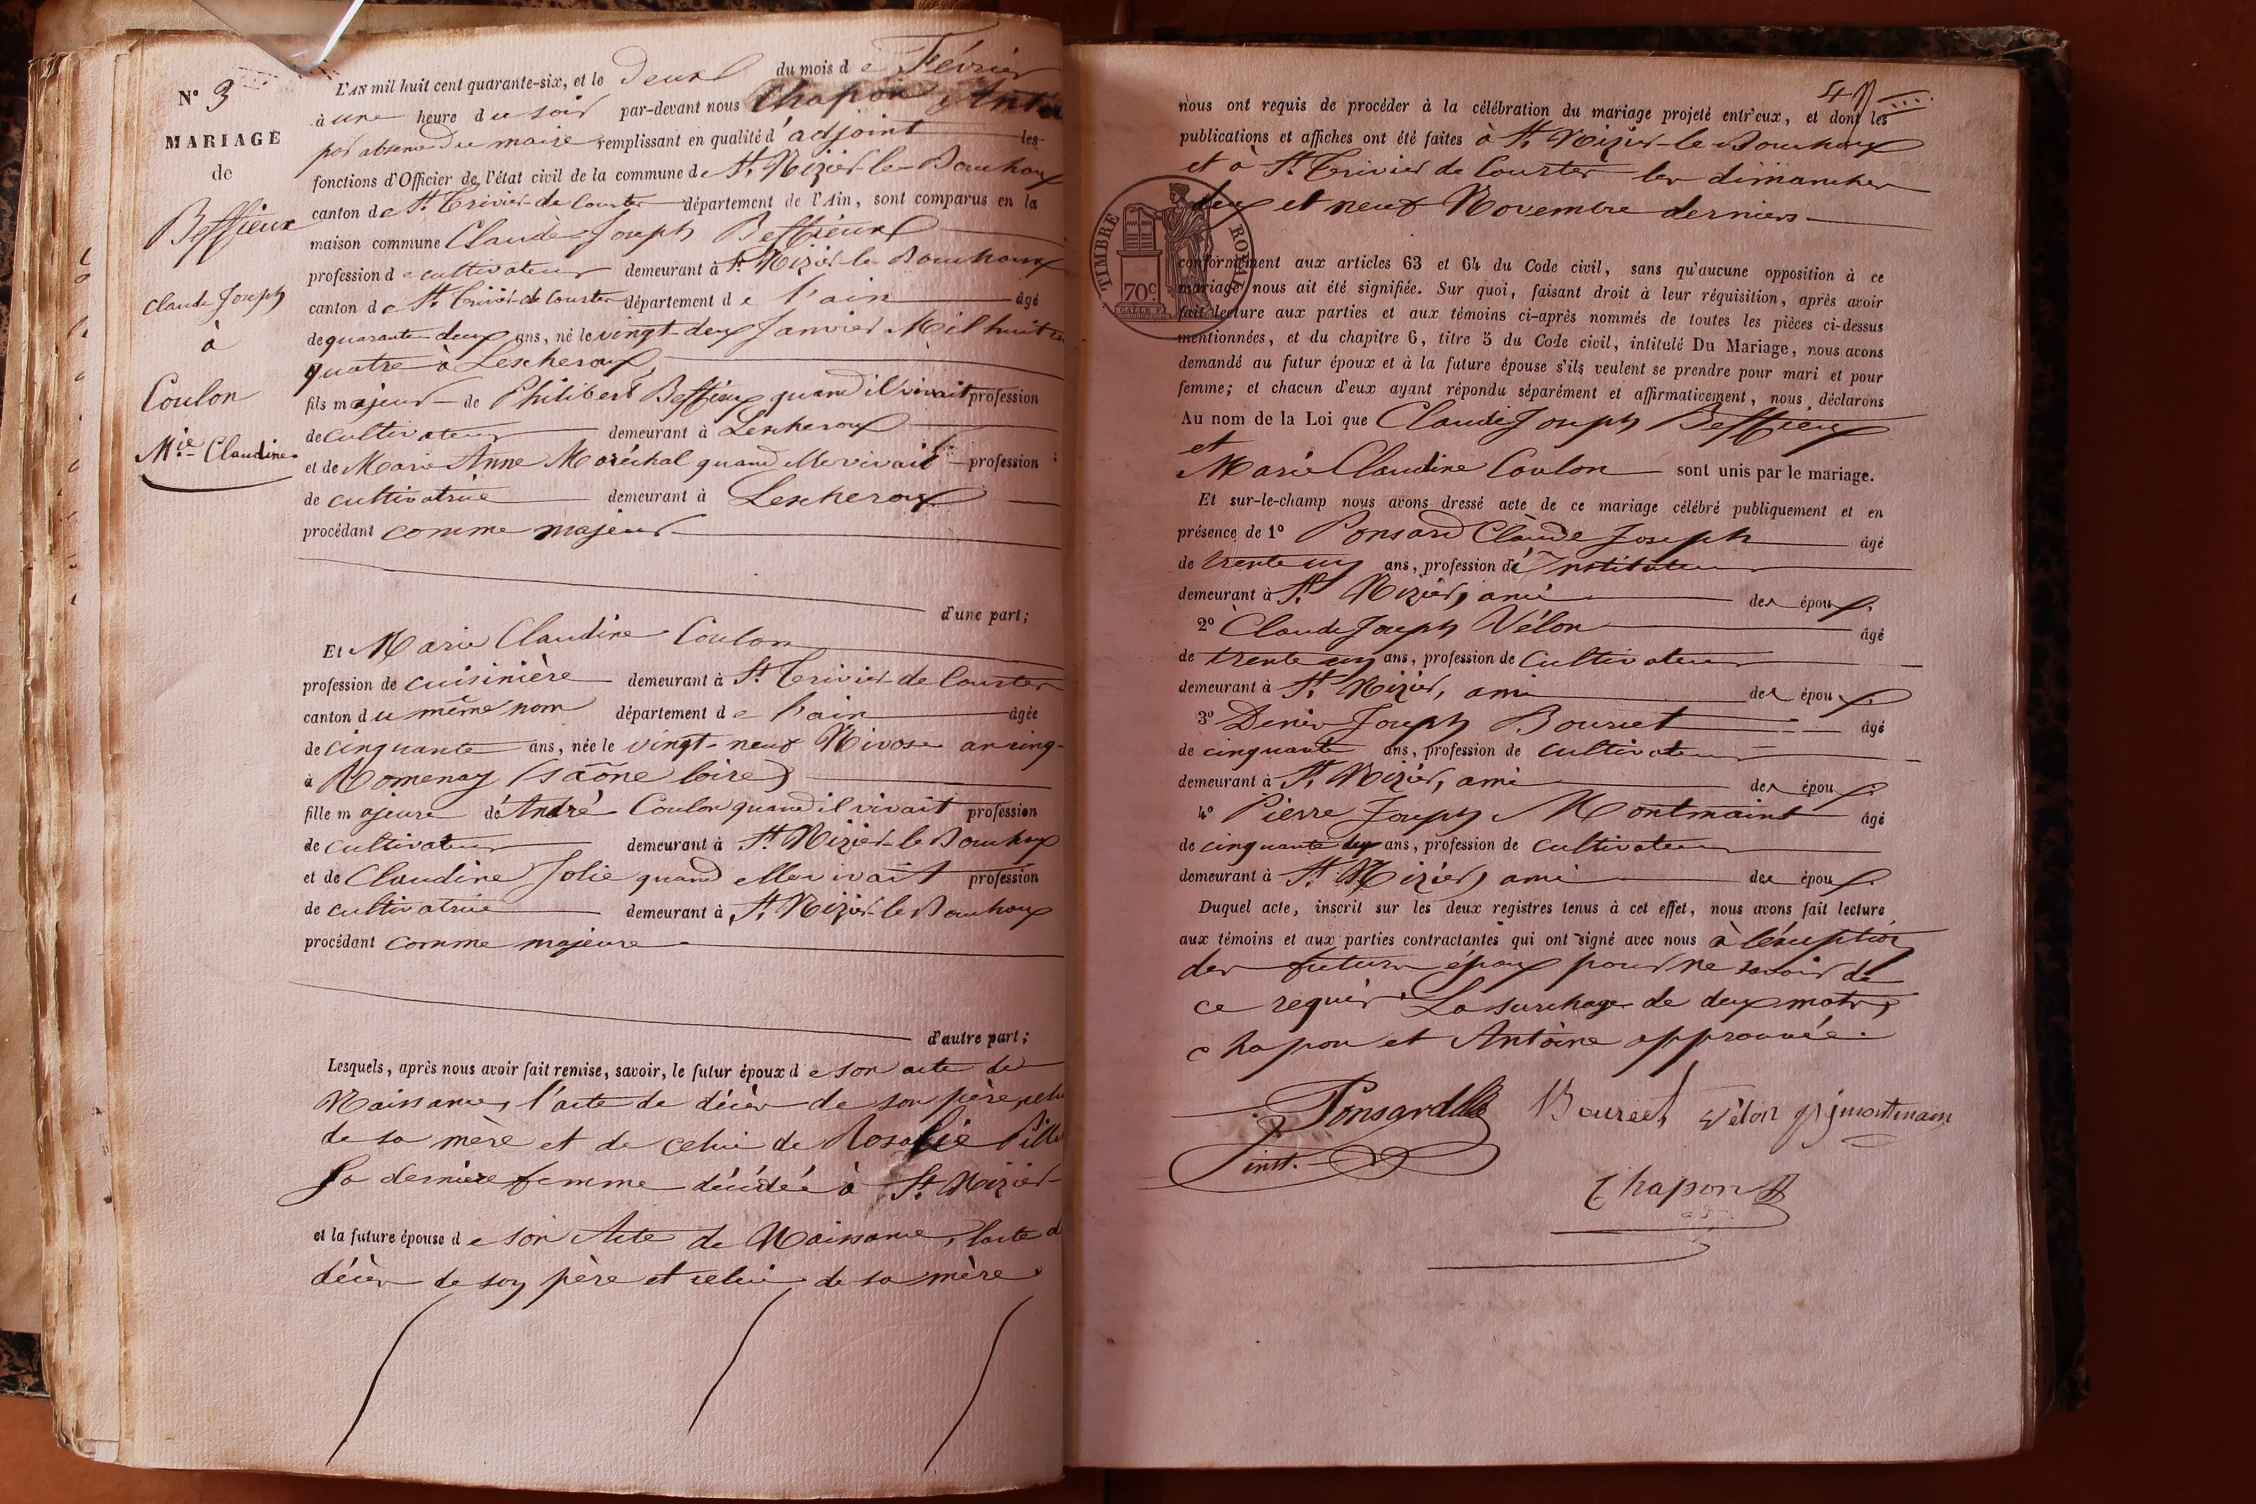 N° 3
MARIAGE
de
Beffieux
Claude Joseph
à
Coulon
M.ie Claudine
L'AN mil huit cent quarante-six, et le deux du mois de Février
à une heure du soir par-devant nous Chapon Antoi
par absence du maire remplissant en qualité d'adjoint les
fonctions d'Officier de l'état civil de la commune de St. Nizier-le-Bouchoux
canton de St. Trivier-de-Courtes département de l'Ain, sont comparus en la
maison commune Claude Joseph Beffieux
profession de cultivateur demeurant à St. Nizier-le-Bouchoux
canton de St. Trivier-de-Courtes département de l'ain âgé
de quarante deux ans, né le vingt-deux Janvier Mil huit ce
quatre à Lescheroux
fils majeur de Philibert Beffieux quand il vivait profession
de cultivateur demeurant à Lescheroux
et de Marie Anne Maréchal quand elle vivait profession
de cultivatrice demeurant à Lescheroux
procédant comme majeur
d'une part;
Et Marie Claudine Coulon
profession de cuisinière demeurant à St. Trivier-de-Courtes
canton du même nom département de l'ain âgée
de cinquante ans, née le vingt-neuf Nivose an cinq
à Romenay (saône loire)
fille majeure de André Coulon quand il vivait profession
de cultivateur demeurant à St. Nizier-le-Bouchoux
et de Claudine Jolie quand elle vivait profession
de cultivatrice demeurant à St. Nizier-le-Bouchoux
procédant comme majeure
d'autre part;
Lesquels, après nous avoir fait remise, savoir, le futur époux de son acte de
Naissance, l'acte de décès de son père, celui
de sa mère et de celui de Rosalie Pille
sa dernière femme décédée à St. Nizier
et la future épouse de son Acte de Naissance, l'acte d
décès de son père et celui de sa mère
nous ont requis de procéder à la célébration du mariage projeté entr'eux, et dont les
publications et affiches ont été faites à St. Nizier-le-Bouchoux
et à St. Trivier de Courtes les dimanches
deux et neuf Novembre derniers
TIMBRE ROYAL
70c
conformément aux articles 63 et 64 du Code civil, sans qu'aucune opposition à ce
mariage nous ait été signifiée. Sur quoi, faisant droit à leur réquisition, après avoir
fait lecture aux parties et aux témoins ci-après nommés de toutes les pièces ci-dessus
mentionnées, et du chapitre 6, titre 5 du Code civil, intitulé Du Mariage, nous avons
demandé au futur époux et à la future épouse s'ils veulent se prendre pour mari et pour
femme; et chacun d'eux ayant répondu séparément et affirmativement, nous déclarons
Au nom de la Loi que Claude Joseph Beffieux
et
Marie Claudine Coulon sont unis par le mariage.
Et sur-le-champ nous avons dressé acte de ce mariage célébré publiquement et en
présence de 1° Ponsard Claude Joseph âgé
de trente un ans, profession d'Instituteur
demeurant à St. Nizier, ami des époux.
2° Claude Joseph Vélon âgé
de trente un ans, profession de Cultivateur
demeurant à St. Nizier, ami des époux.
3° Denis Joseph Bouret âgé
de cinquante ans, profession de cultivateur
demeurant à St. Nizier, ami des époux.
4° Pierre Joseph Montmaint âgé
de cinquante deux ans, profession de cultivateur
demeurant à St. Nizier, ami des époux.
Duquel acte, inscrit sur les deux registres tenus à cet effet, nous avons fait lecture
aux témoins et aux parties contractantes qui ont signé avec nous à l'éxception
des futurs époux pour ne savoir de
ce requis. La surcharge de deux mots,
chapon et Antoine approuvée.
Ponsard
inst.
Boureet Vélon pjmontmain
Chapon